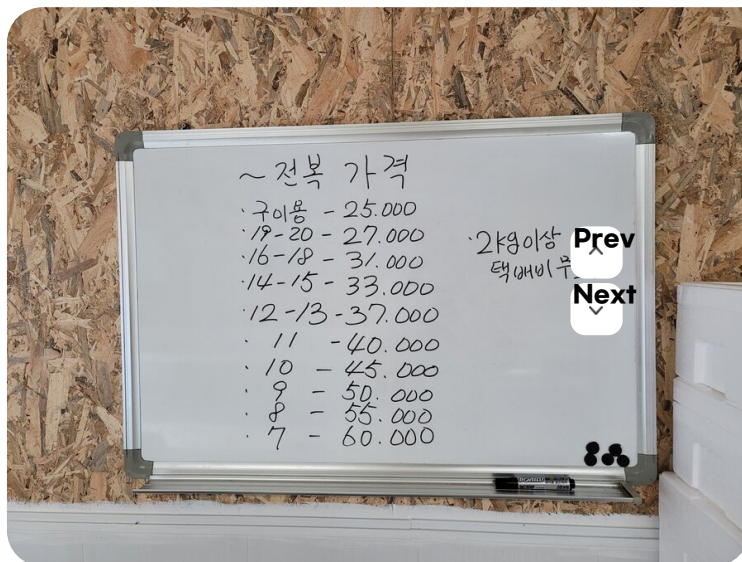 ~ 전복 가격
· 구이용 - 25.000
· 19-20 - 27.000
· 16-18 - 31.000
· 14-15 - 33.000
· 12-13 - 37.000
· 11 - 40.000
· 10 - 45.000
· 9 - 50.000
· 8 - 55.000
· 7 - 60.000
· 2kg이상
택배비
Prev
Next